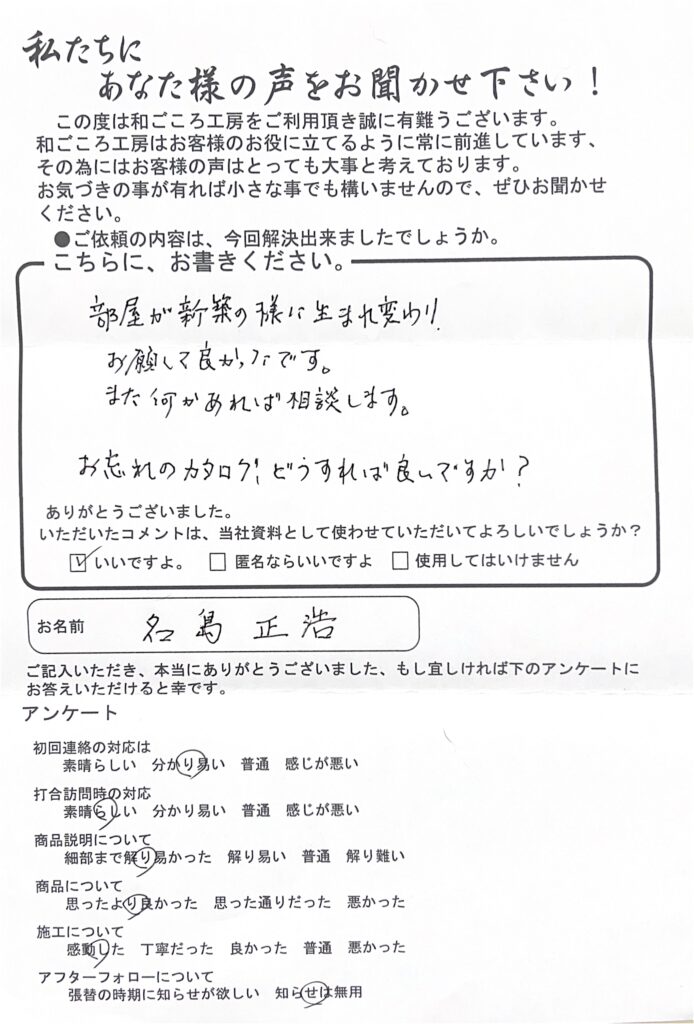 私たちに
あなた様の声をお聞かせ下さい！
この度は和ごころ工房をご利用頂き誠に有難うございます。
和ごころ工房はお客様のお役に立てるように常に前進しています、
その為にはお客様の声はとっても大事と考えております。
お気づきの事が有れば小さな事でも構いませんので、ぜひお聞かせ
ください。
●ご依頼の内容は、今回解決出来ましたでしょうか。
こちらに、お書きください。
部屋が新築の様に生まれ変わり
お願して良かったです。
また何かあれば相談します。
お忘れのカタログ、どうすれば良いですか？
ありがとうございました。
いただいたコメントは、当社資料として使わせていただいてよろしいでしょうか？
☑いいですよ。 □匿名ならいいですよ □使用してはいけません
お名前 名島 正浩
ご記入いただき、本当にありがとうございました、もし宜しければ下のアンケートに
お答えいただけると幸です。
アンケート
初回連絡の対応は
素晴らしい 分かり易い 普通 感じが悪い
打合訪問時の対応
素晴らしい 分かり易い 普通 感じが悪い
商品説明について
細部まで解り易かった 解り易い 普通 解り難い
商品について
思ったより良かった 思った通りだった 悪かった
施工について
感動した 丁寧だった 良かった 普通 悪かった
アフターフォローについて
張替の時期に知らせが欲しい 知らせは無用